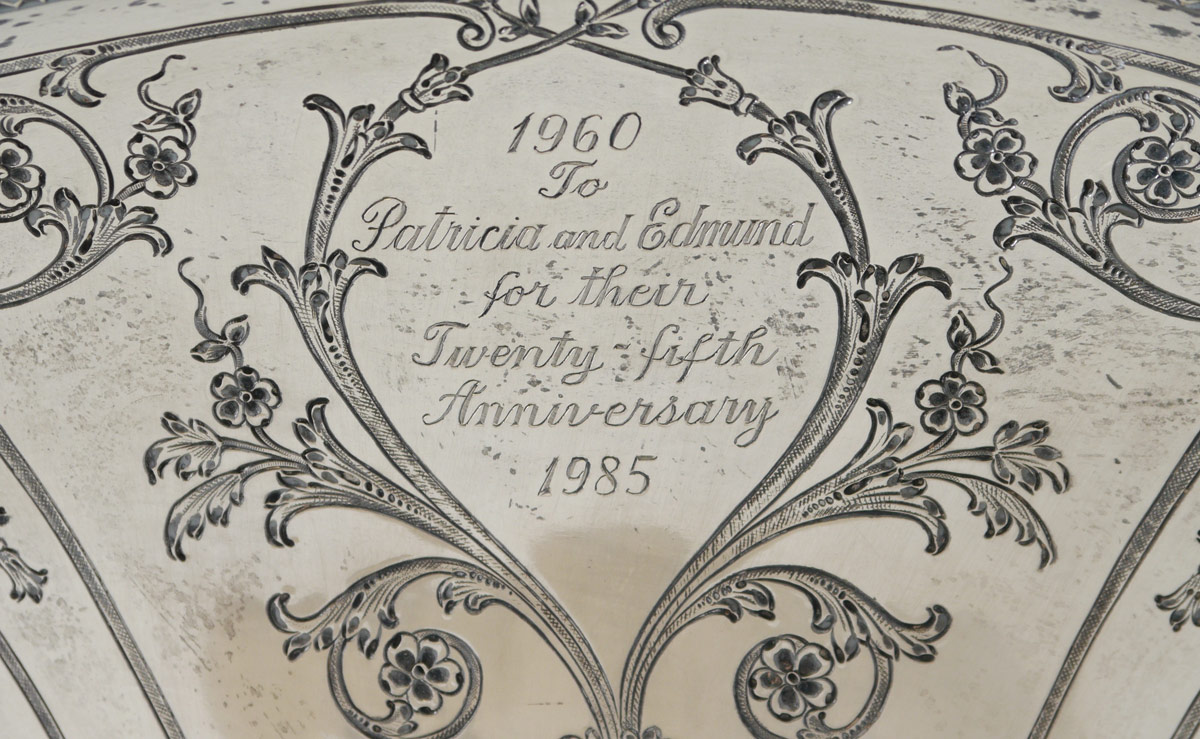 1960
To
Patricia and Edmund
for their
Twenty-fifth
Anniversary
1985